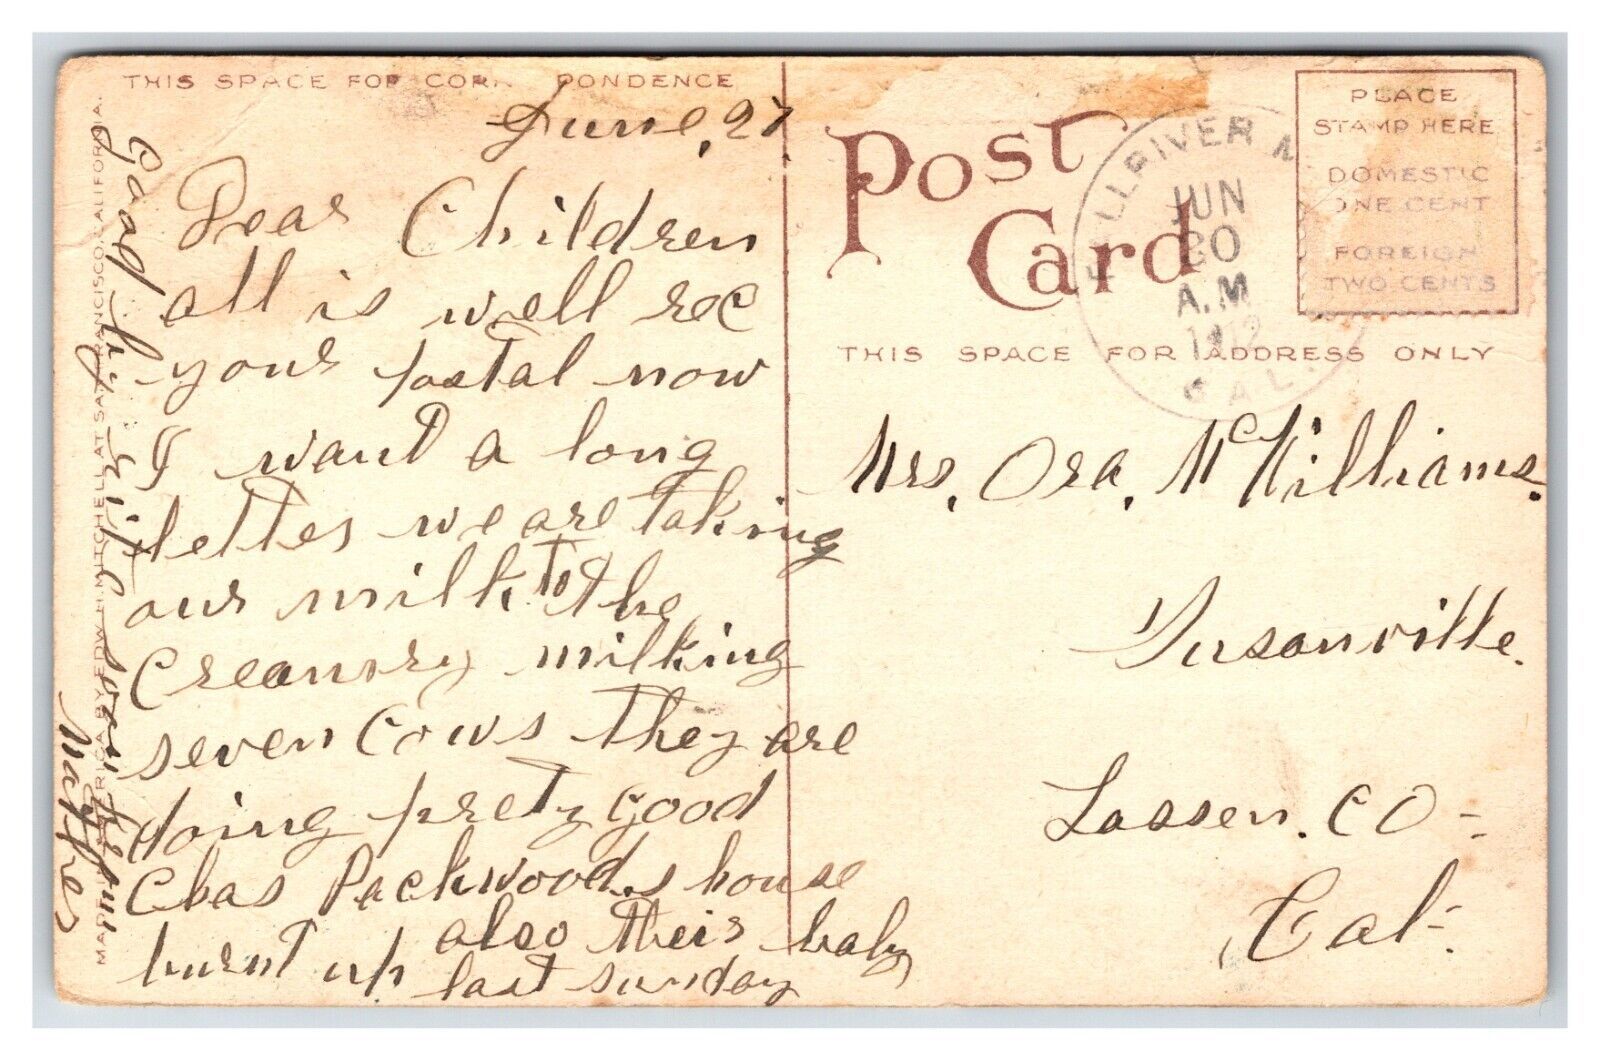 THIS SPACE FOR CORR PONDENCE
June, 27.
Dear Children
all is well rec
your postal now
I want a long
letter we are taking
our milk to the
Creamry milking
seven cows they are
doing prety good
Chas Packwood.s house
burnt up also their baby
last sunday
Good by rite soon
MITCHELL AT SAN FRANCISCO, CALIFORNIA.
Post
Card
FALLRIVER M
JUN
30
A.M
1912
CAL.
PLACE
STAMP HERE
DOMESTIC
ONE CENT
FOREIGN
TWO CENTS
THIS SPACE FOR ADDRESS ONLY
Mrs. Ora. McWilliams.
Susanville.
Lassen. CO-
Cal-